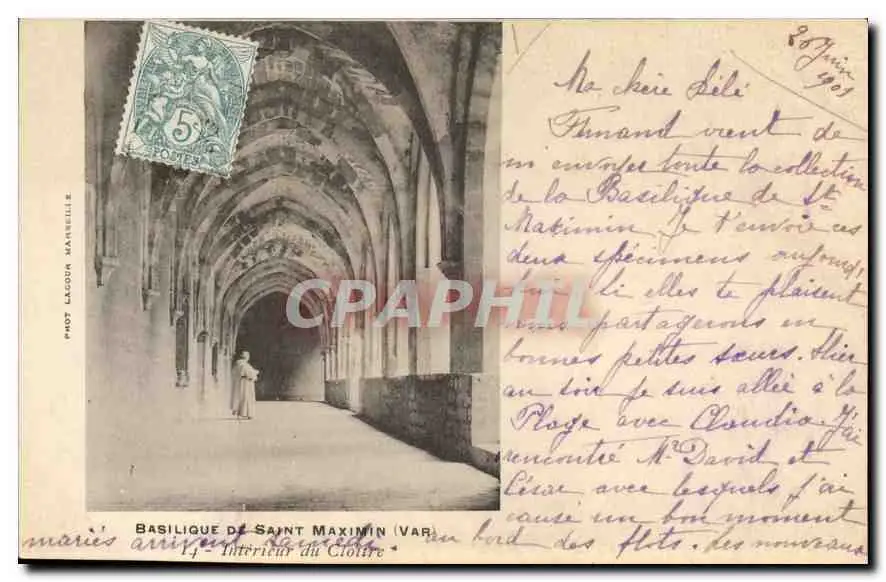 26 Juin
1901
Ma chère Lélé
Fernand vient de
m'envoyer toute la collection
de la Basilique de St
Maximin. Je t'envoie ces
deux spécimens aujourd'
hui. Si elles te plaisent
nous partagerons en
bonnes petites sœurs. Hier
au soir je suis allée à la
Plage avec Claudia. J'ai
rencontré Mr David et
César avec lesquels j'ai
causé un bon moment
au bord des flots. Les nouveaux
mariés arrivent samedi.
5c
POSTES
PHOT LACOUR MARSEILLE
CPAPHIL
BASILIQUE DE SAINT MAXIMIN (VAR)
14 - Intérieur du Cloître